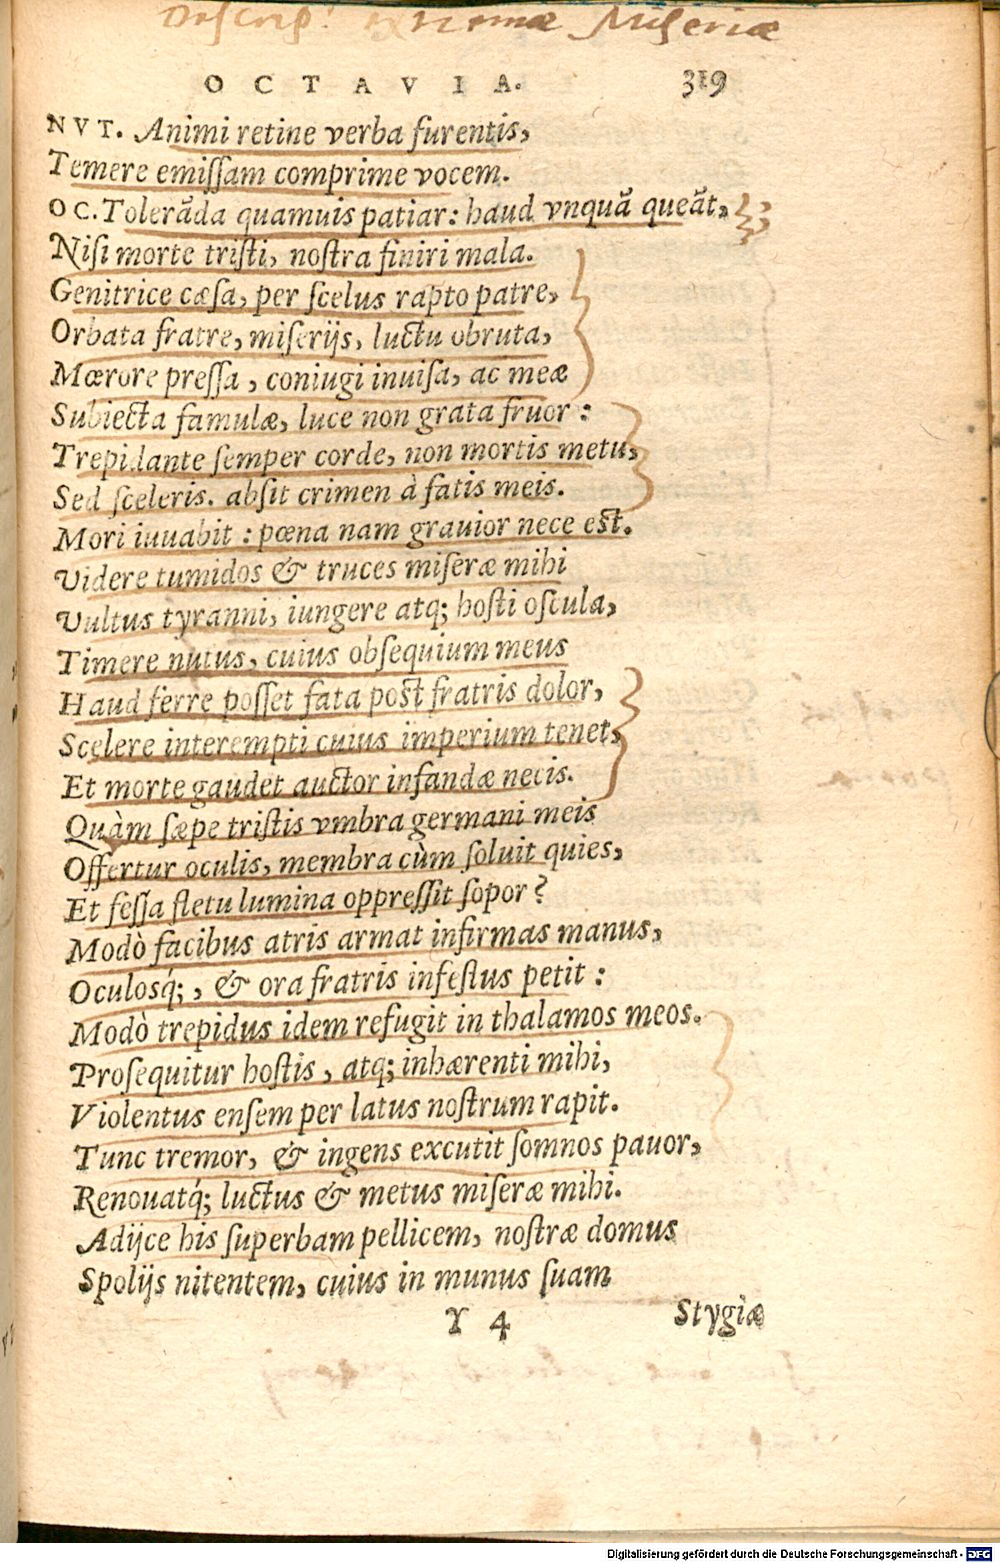 Descrip: extremæ Miseriæ
OCTAVIA. 319
NVT. Animi retine verba furentis,
Temere emissam comprime vocem.
OC. Tolerãda quamuis patiar: haud vnquã queãt,
Nisi morte tristi, nostra finiri mala.
Genitrice cæsa, per scelus rapto patre,
Orbata fratre, miserijs, luctu obruta,
Mœrore pressa, coniugi inuisa, ac meæ
Subiecta famulæ, luce non grata fruor:
Trepidante semper corde, non mortis metu,
Sed sceleris. absit crimen à fatis meis.
Mori iuuabit: pœna nam grauior nece est.
Videre tumidos & truces miseræ mihi
Vultus tyranni, iungere atq; hosti oscula,
Timere nutus, cuius obsequium meus
Haud ferre posset fata post fratris dolor,
Scelere interempti cuius imperium tenet,
Et morte gaudet auctor infandæ necis.
Quàm sæpe tristis vmbra germani meis
Offertur oculis, membra cùm soluit quies,
Et fessa fletu lumina oppressit sopor?
Modò facibus atris armat infirmas manus,
Oculosq́;, & ora fratris infestus petit:
Modò trepidus idem refugit in thalamos meos.
Prosequitur hostis, atq; inhærenti mihi,
Violentus ensem per latus nostrum rapit.
Tunc tremor, & ingens excutit somnos pauor,
Renouatq́; luctus & metus miseræ mihi.
Adijce his superbam pellicem, nostræ domus
Spolijs nitentem, cuius in munus suam
Y 4 Stygiæ
Digitalisierung gefördert durch die Deutsche Forschungsgemeinschaft - DFG